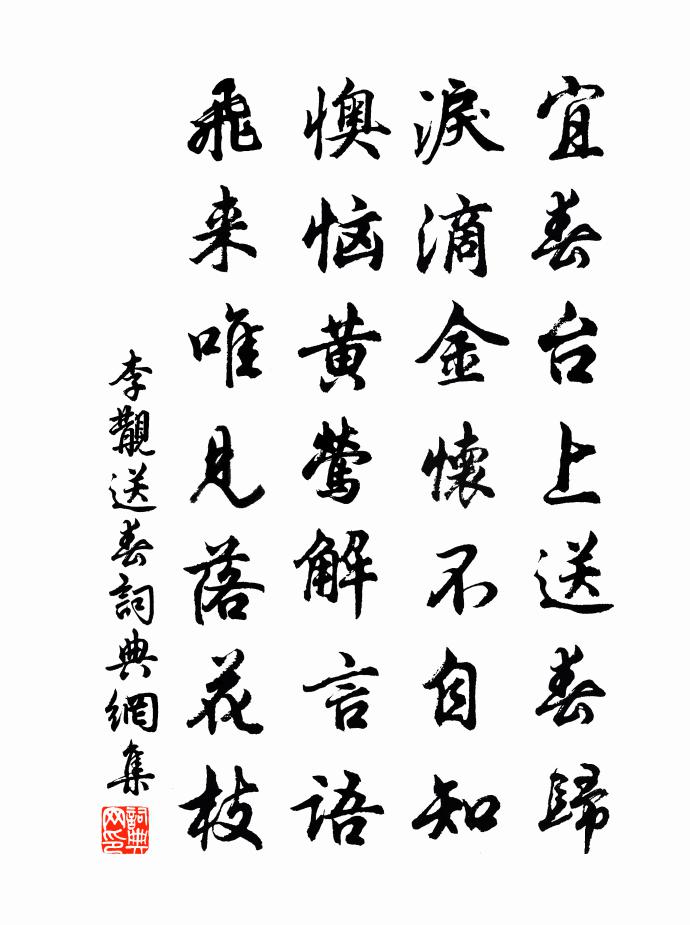 宜春台上送春歸
淚滴金懷不自知
懊恼黄鶯解言語
飛来唯見落花枝
李覯送春詞典網集
詞典网印